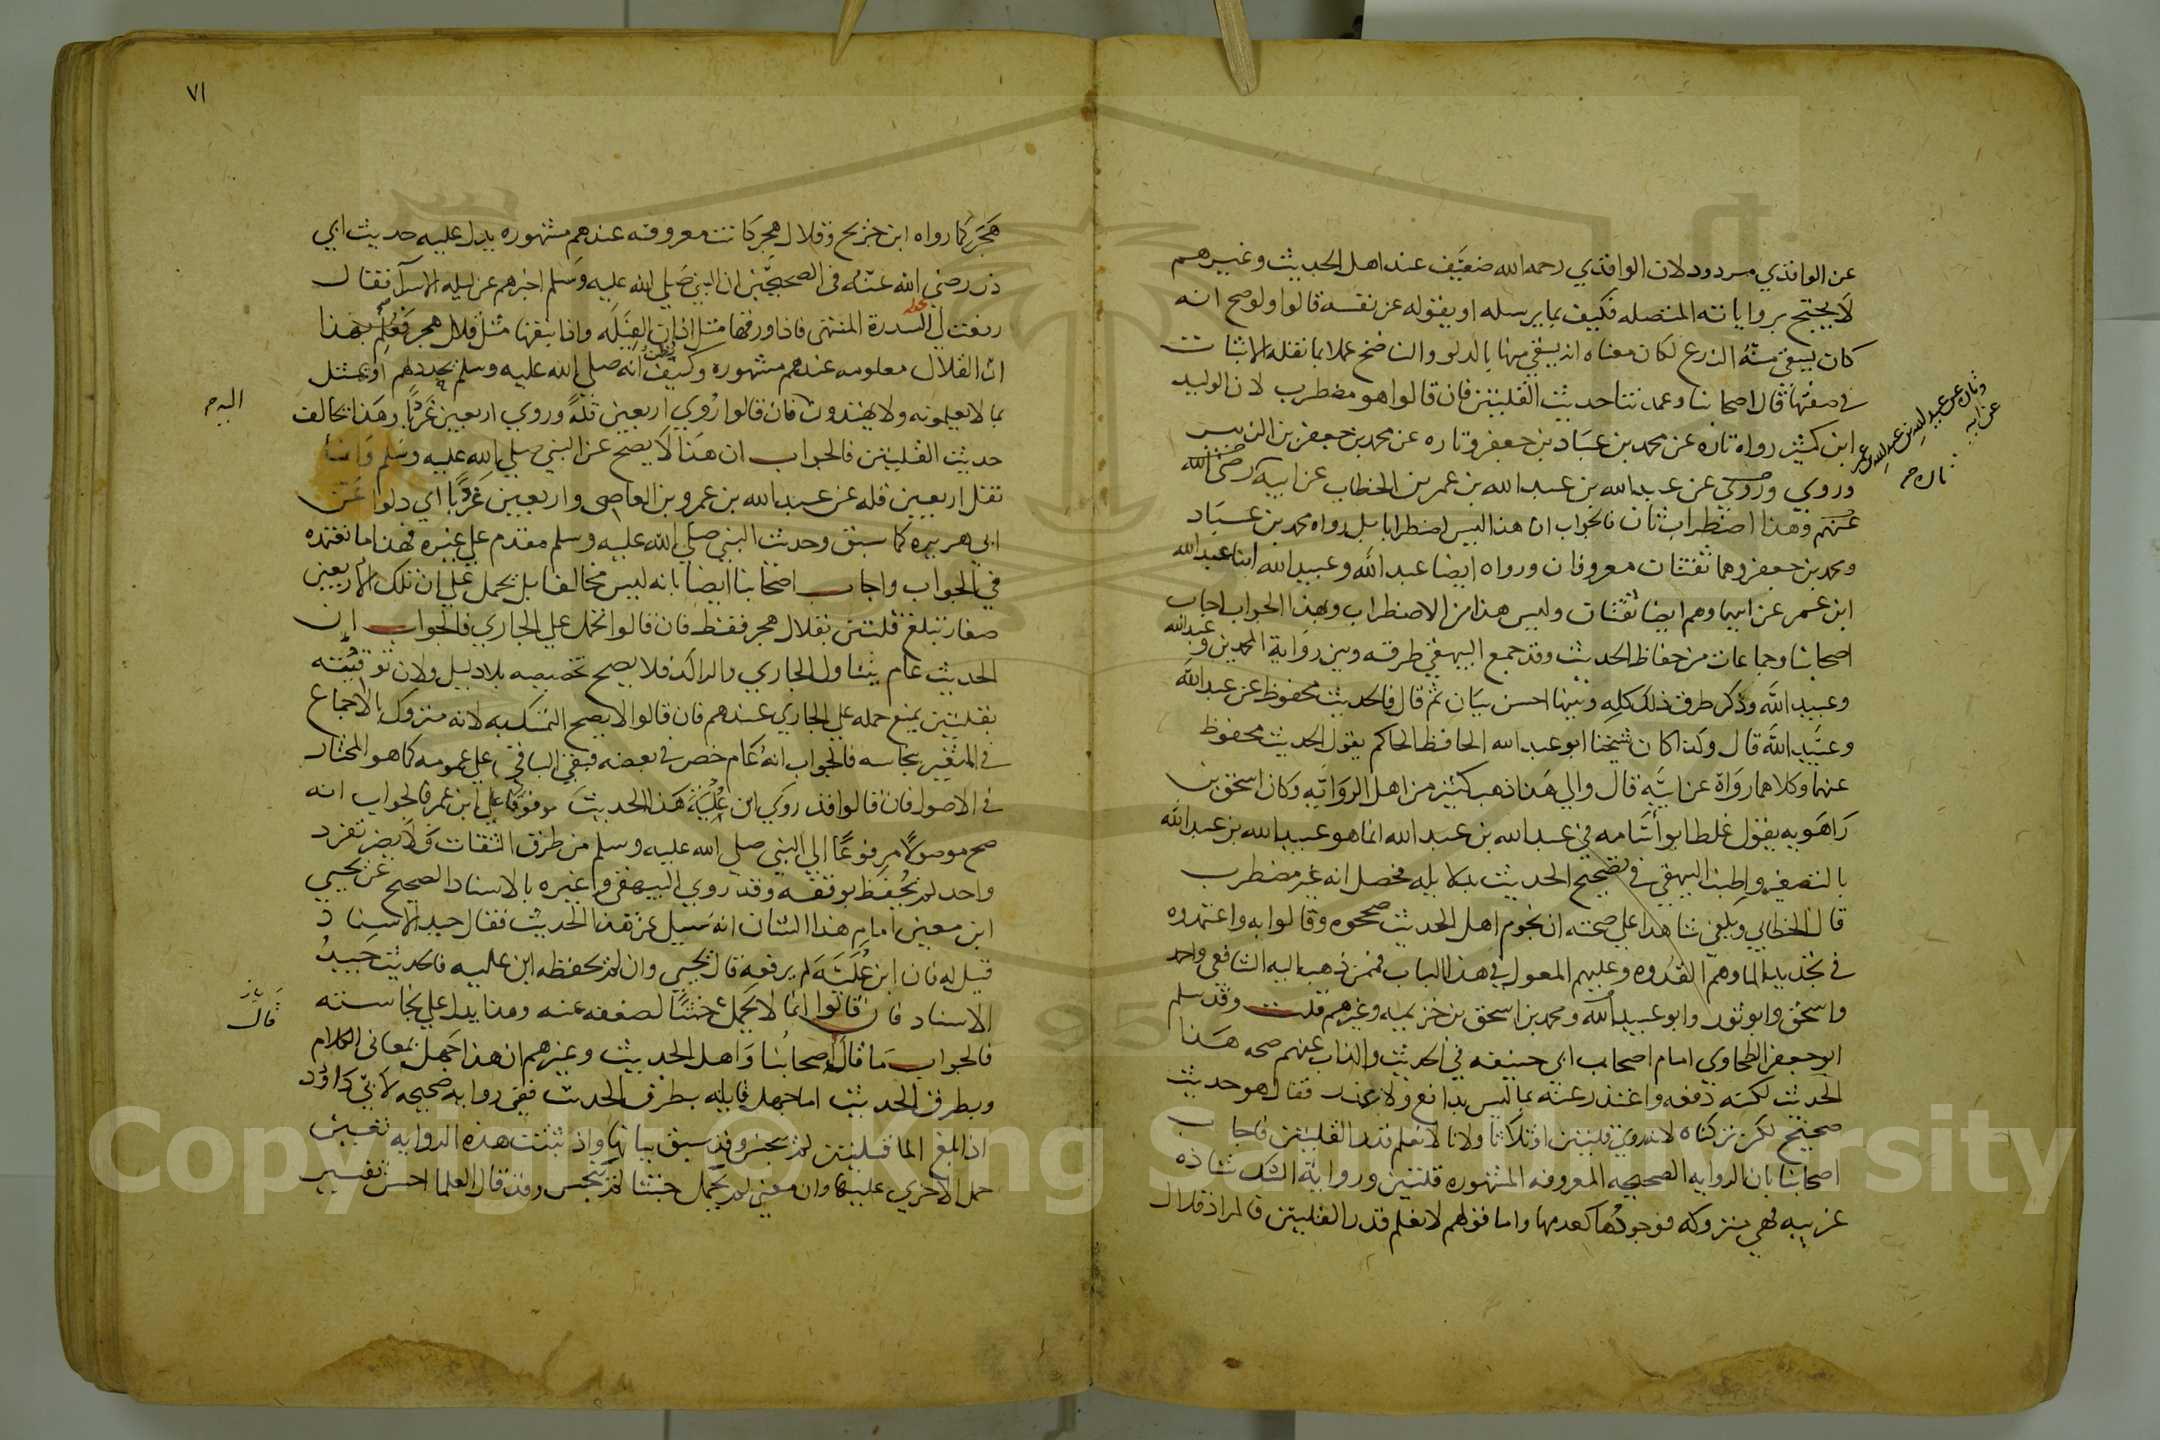 عن الواقدي مردود لان الواقدي رحمه الله ضعيف عند اهل الحديث وغيرهم
لا يحتج برواياته المتصله فكيف بما يرسله او يقوله عن نفسه قالوا ولو صح انه
كان يسقى منه الزرع لكان معناه انه يسقي منها بالدلو والناضح عملا بما نقله الاثبات
في صفتها قال اصحابنا وعمدتنا حديث القلتين فان قالوا هو مضطرب لان الوليد
ابن كثير رواه تاره عن محمد بن عباد بن جعفر وتاره عن محمد بن جعفر بن الزبير
وروي وروي عن عبد الله بن عبد الله بن عمر بن الخطاب عن ابيه رضي الله
عنهم وهذا اضطراب ثان فالجواب ان هذا ليس اضطرابا بل رواه محمد بن عباد
ومحمد بن جعفر وهما ثقتان معروفان ورواه ايضا عبد الله وعبيد الله ابنا عبد الله
ابن عمر عن ابيهما وهم ايضا ثقتان وليس هذا من الاضطراب وبهذا الجواب اجاب
اصحابنا وجماعات من حفاظ الحديث وقد جمع البيهقي طرقه وبين رواية المحمدين وعبد الله
وعبيد الله وذكر طرق ذلك كله وبينها احسن بيان ثم قال فالحديث محفوظ عن عبد الله
وعبيد الله قال وكذا كان شيخنا ابو عبد الله الحافظ الحاكم يقول الحديث محفوظ
عنهما وكلاهما رواه عن ابيه قال والي هذا ذهب كثير من اهل الرواية وكان اسحق بن
راهويه يقول غلط ابو أسامه في عبد الله بن عبد الله انما هو عبيد الله بن عبد الله
بالتصغير واطنب البيهقي في تصحيح الحديث بدلايله فحصل انه غير مضطرب
قال الخطابي ويكفي شاهدا علي صحته ان نجوم اهل الحديث صححوه وقالوا به واعتمدوه
في تحديد الما وهم القدوه وعليهم المعول في هذا الباب فممن ذهب اليه الشافعي واحمد
واسحق وابو ثور وابو عبيد الله ومحمد بن اسحق بن خزيمه وغيرهم قلت وقد سلم
ابو جعفر الطحاوي امام اصحاب ابي حنيفه في الحديث والذاب عنهم صحه هذا
الحديث لكنه دفعه واعتذر عنه بما ليس بدافع ولا عذر فقال هو حديث
صحيح لكن تركناه لانه روي قلتين او ثلاثا ولانا لا نعلم قدر القلتين فاجاب
اصحابنا بان الروايه الصحيحه المعروفه المشهوره قلتين ورواية الشك شاذه
غريبه فهي متروكه فوجودها كعدمها واما قولهم لا نعلم قدر القلتين فالمراد قلال
وتاره عن عبيد الله بن عبد الله بن عمر
عن ابيه
٧١
هجر كما رواه ابن جريج وقلال هجر كانت معروفه عندهم مشهوره يدل عليه حديث ابي
ذر رضي الله عنه في الصحيحين ان النبي صلي الله عليه وسلم اخبرهم عن ليله الاسرا فقال
رفعت لي السدرة المنتهي فاذا ورقها مثل اذان الفيله واذا نبقها مثل قلال هجر فعلم بهذا
ان القلال معلومه عندهم مشهوره وكيف يظن انه صلي الله عليه وسلم يحدد لهم او يمثل
بما لا يعلمونه ولا يهتدون فان قالوا رُوي اربعين قلة وروي اربعين غربا وهذا يخالف
حديث القلتين فالجواب ان هذا لا يصح عن النبي صلي الله عليه وسلم وانما
نقل اربعين قله عن عبد الله بن عمرو بن العاصي واربعين غربا اي دلوا عن
ابي هريره كما سبق وحديث النبي صلي الله عليه وسلم مقدم علي غيره فهذا ما نعتمده
في الجواب واجاب اصحابنا ايضا بانه ليس مخالفا بل يحمل علي ان تلك الاربعين
صغار تبلغ قلتين بقلال هجر فقط فان قالوا نحمله علي الجاري فالجواب ان
الحديث عام يتناول الجاري والراكد فلا يصح تخصيصه بلا دليل ولان توقيته
بقلتين يمنع حمله علي الجاري عندهم فان قالوا لا يصح التمسك به لانه متروك بالاجماع
في المتغير بنجاسه فالجواب انه عام خص في بعضه فبقي الباقي علي عمومه كما هو المختار
في الاصول فان قالوا قد روي ابن عُلَيَّة هذا الحديث موقوفا علي ابن عمر فالجواب انه
صح موصولا مرفوعا الي النبي صلي الله عليه وسلم من طرق الثقات ولا يضر تفرد
واحد لم يحفظ بوقفه وقد روي البيهقي وغيره بالاسناد الصحيح عن يحيي
ابن معين امام هذا الشان انه سيل عن هذا الحديث فقال جيد الاسناد
قيل له فان ابن عُلَيَّة لم يرفعه قال يحيي وان لم يحفظه ابن عليه فالحديث جيد
الاسناد فان قالوا انما لا يحمل خبثا لضعفه عنه وهذا يدل علي نجاسته
فالجواب ما قال اصحابنا واهل الحديث وغيرهم ان هذا جهل بمعاني الكلام
وبطرق الحديث اما جهل قايله بطرق الحديث ففي روايه صحيحه لابي داود
اذا بلغ الما قلتين لم ينجس وقد سبق بيانها واذ ثبتت هذه الروايه تعين
حمل الاخري عليها وان معني لم يحمل خبثا لم ينجس وقد قال العلما احسن تفسير